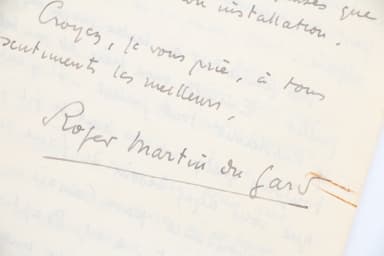 que
installation.
Croyez, je vous prie, à tous
sentiments les meilleurs,
Roger Martin du Gard